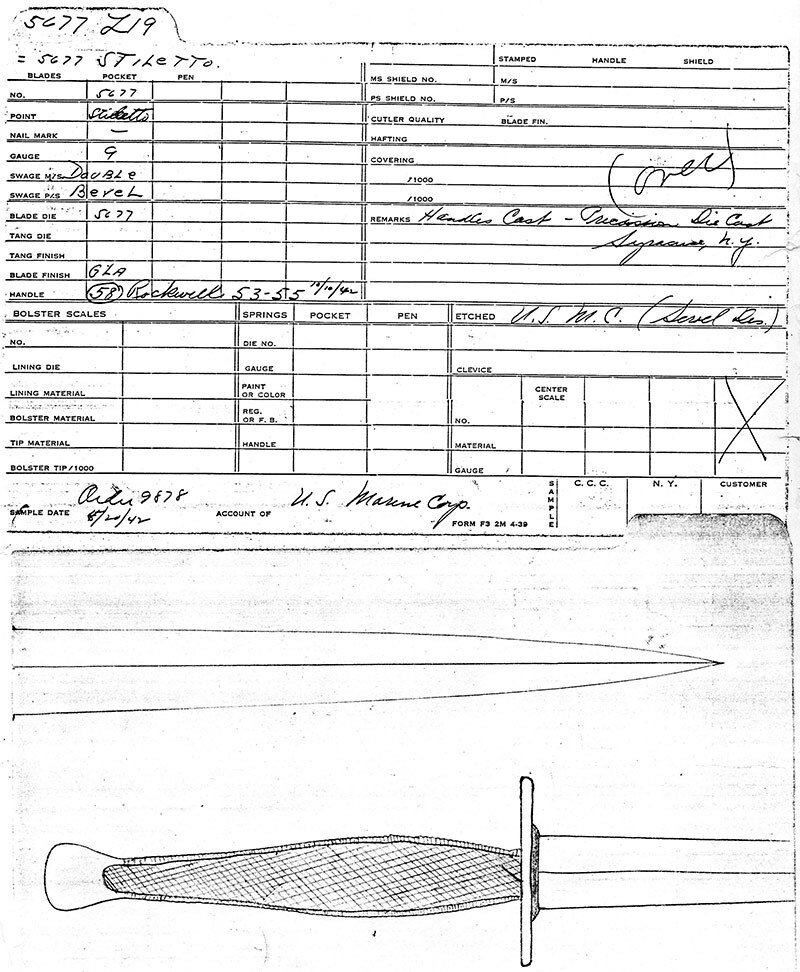 5677 Z19
= 5677 STILETTO.
STAMPED HANDLE SHIELD
BLADES POCKET PEN
MS SHIELD NO. M/S
NO. 5677
PS SHIELD NO. P/S
POINT Stiletto
CUTLER QUALITY BLADE FIN.
NAIL MARK —
HAFTING
GAUGE 9
COVERING
SWAGE M/S Double
/1000
(over)
SWAGE P/S Bevel
/1000
BLADE DIE 5677
REMARKS Handles Cast - Precision Die Cast
TANG DIE
Syracuse, N.Y.
TANG FINISH
BLADE FINISH GLA
HANDLE (58) Rockwell 53-55 10/10/42
BOLSTER SCALES SPRINGS POCKET PEN ETCHED U.S.M.C. (
NO. DIE NO.
LINING DIE GAUGE CLEVICE
LINING MATERIAL PAINT OR COLOR CENTER SCALE
BOLSTER MATERIAL REG. OR F.B. NO.
TIP MATERIAL HANDLE MATERIAL
BOLSTER TIP/1000 GAUGE
SAMPLE C.C.C. N.Y. CUSTOMER
Order 9878
SAMPLE DATE 8/20/42 ACCOUNT OF U.S. Marine Corp.
FORM F3 2M 4-39